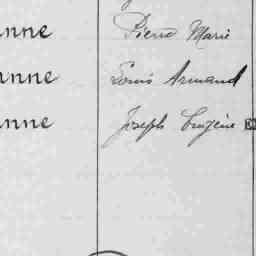 anne Pierre Marie
anne Louis Armand
anne Joseph Eugène